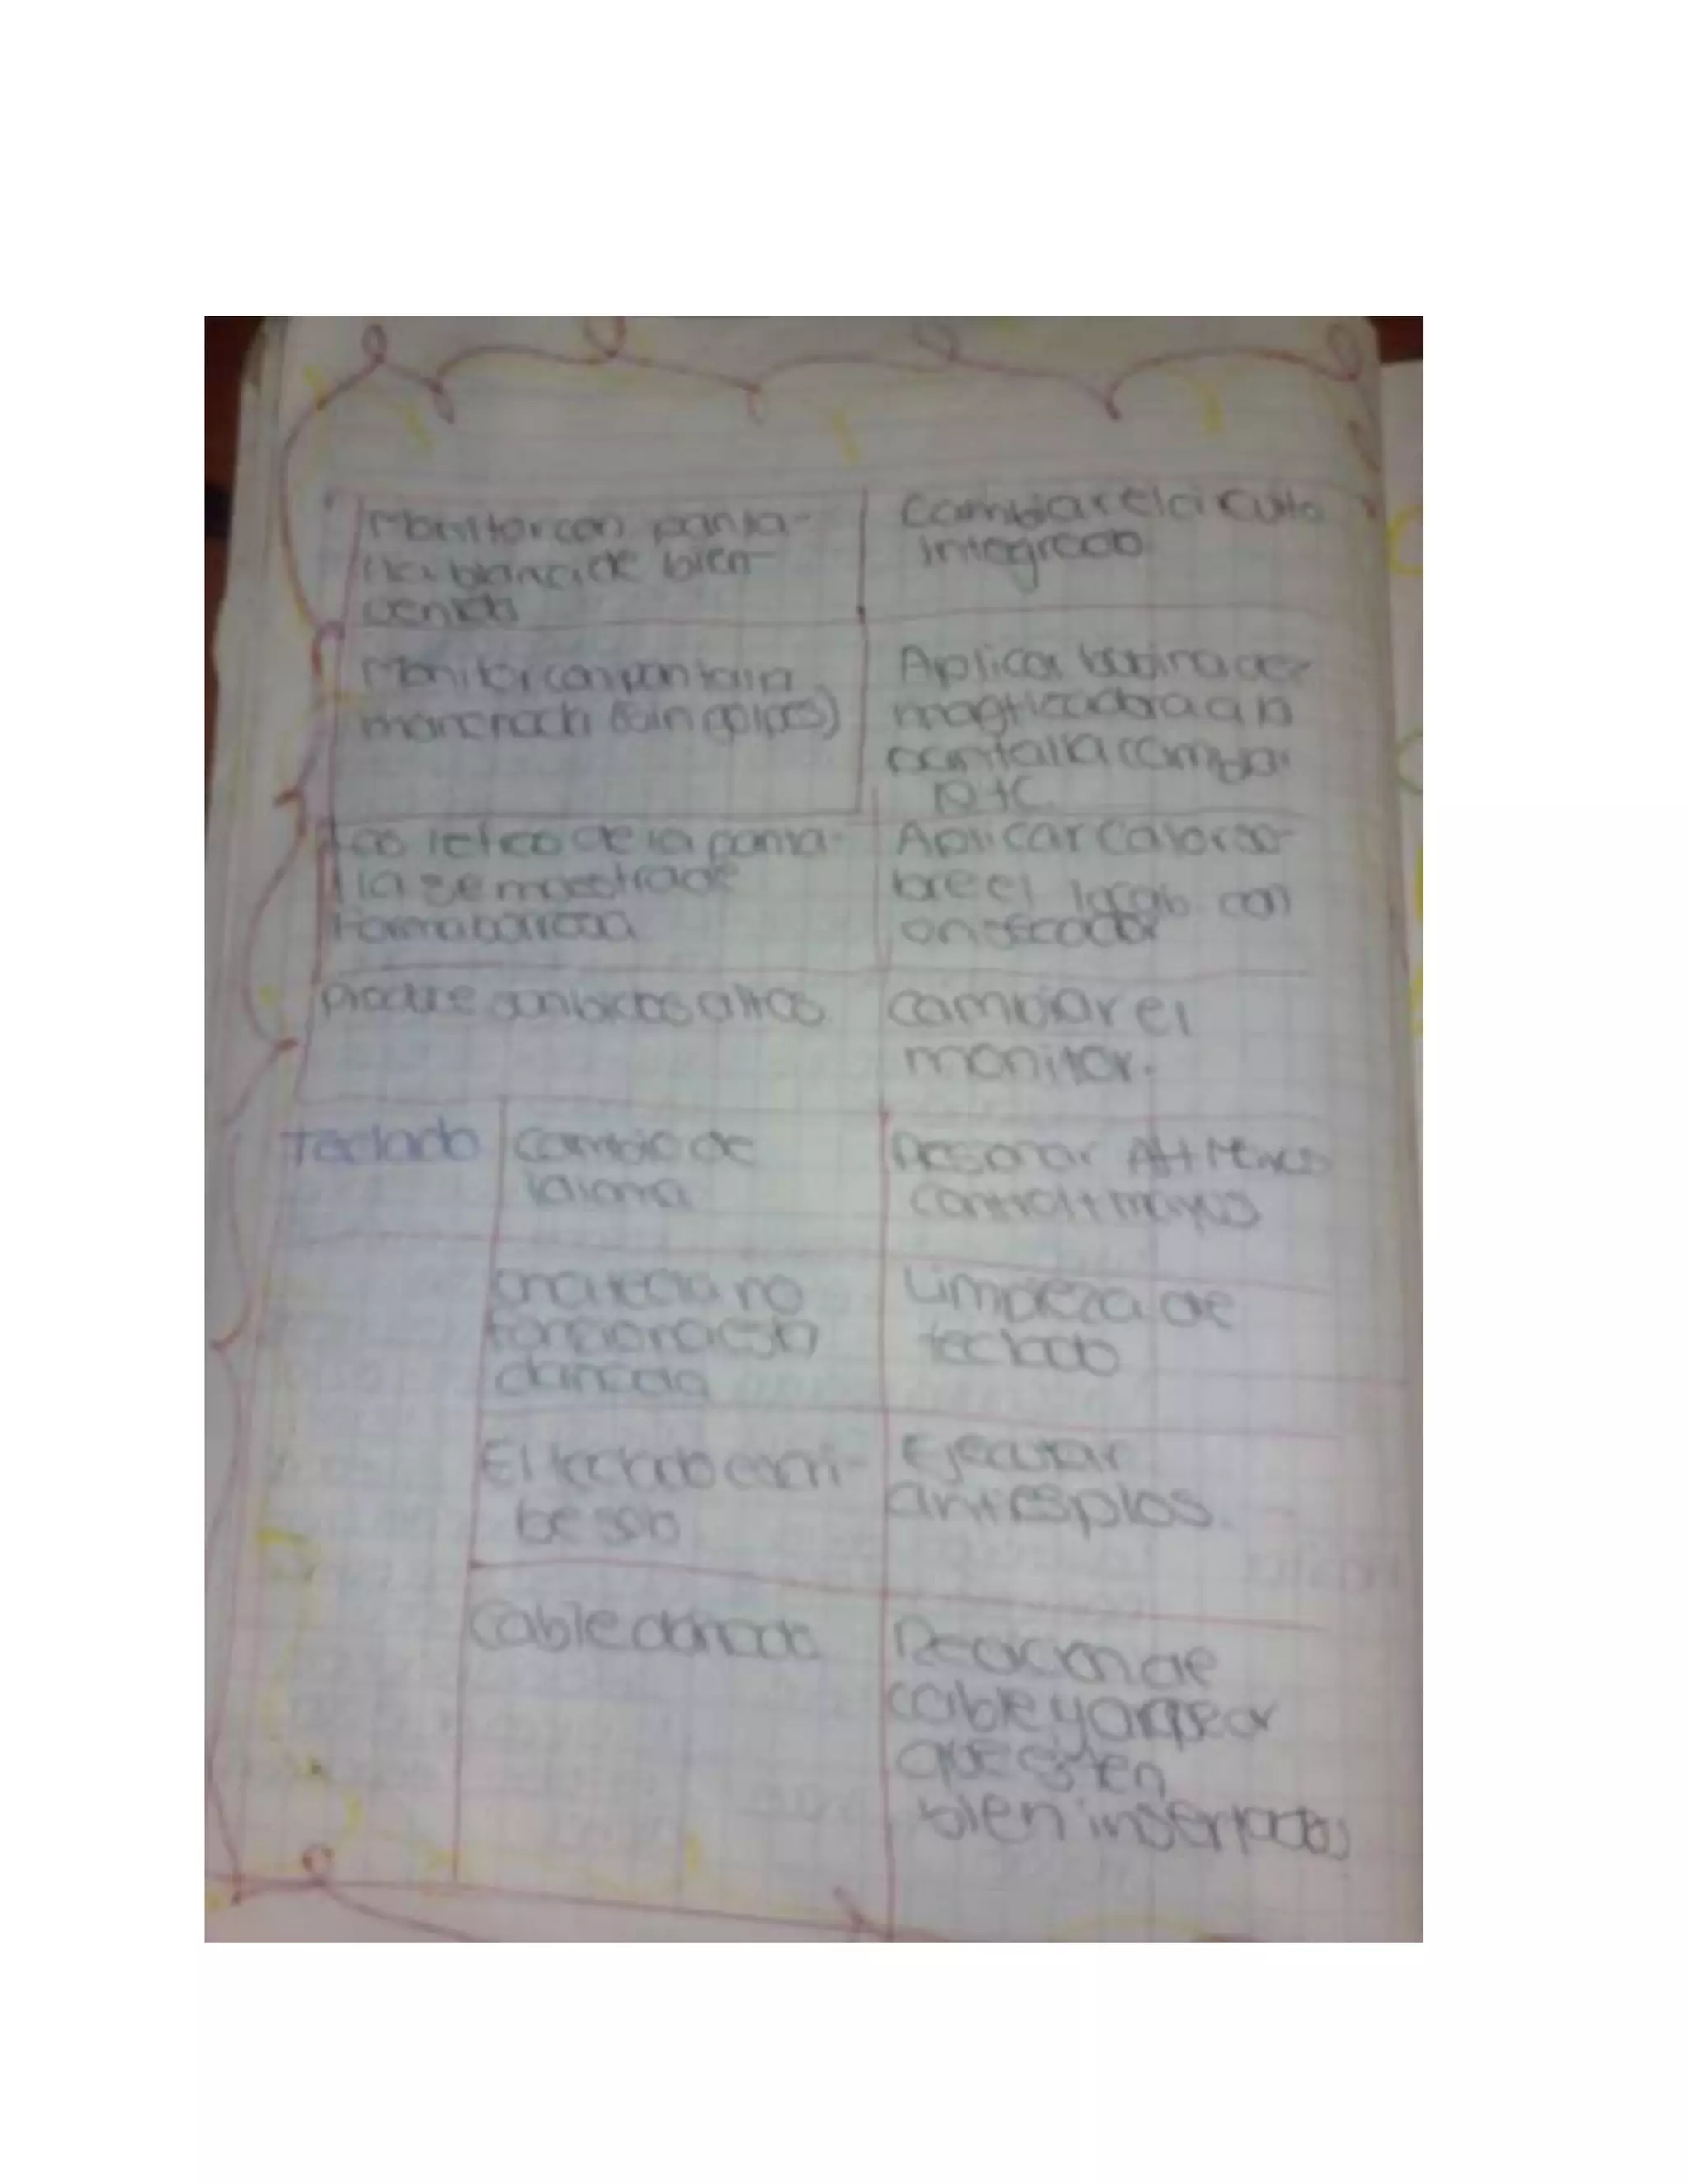 Monitor con panta-
lla blanca de bien-
venida
Cambiar el circuito
integrado
Monitor con pantalla
manchada (sin golpes)
Aplicar bobina des
magtizadora a la
pantalla cambiar
PTC
de la panta-
lla se muestra de
forma borrosa
Aplicar calor so-
bre el con
un secador
Produce sonbidos altos
cambiar el
monitor.
Teclado
Cambio de
idioma
Alt
control + mayus
una tecla no
funciona esta
danada
Limpieza de
teclado
El teclado escri-
be solo
Ejecutar
antespias.
Cable danado
de
cable y
que esten
bien insertados